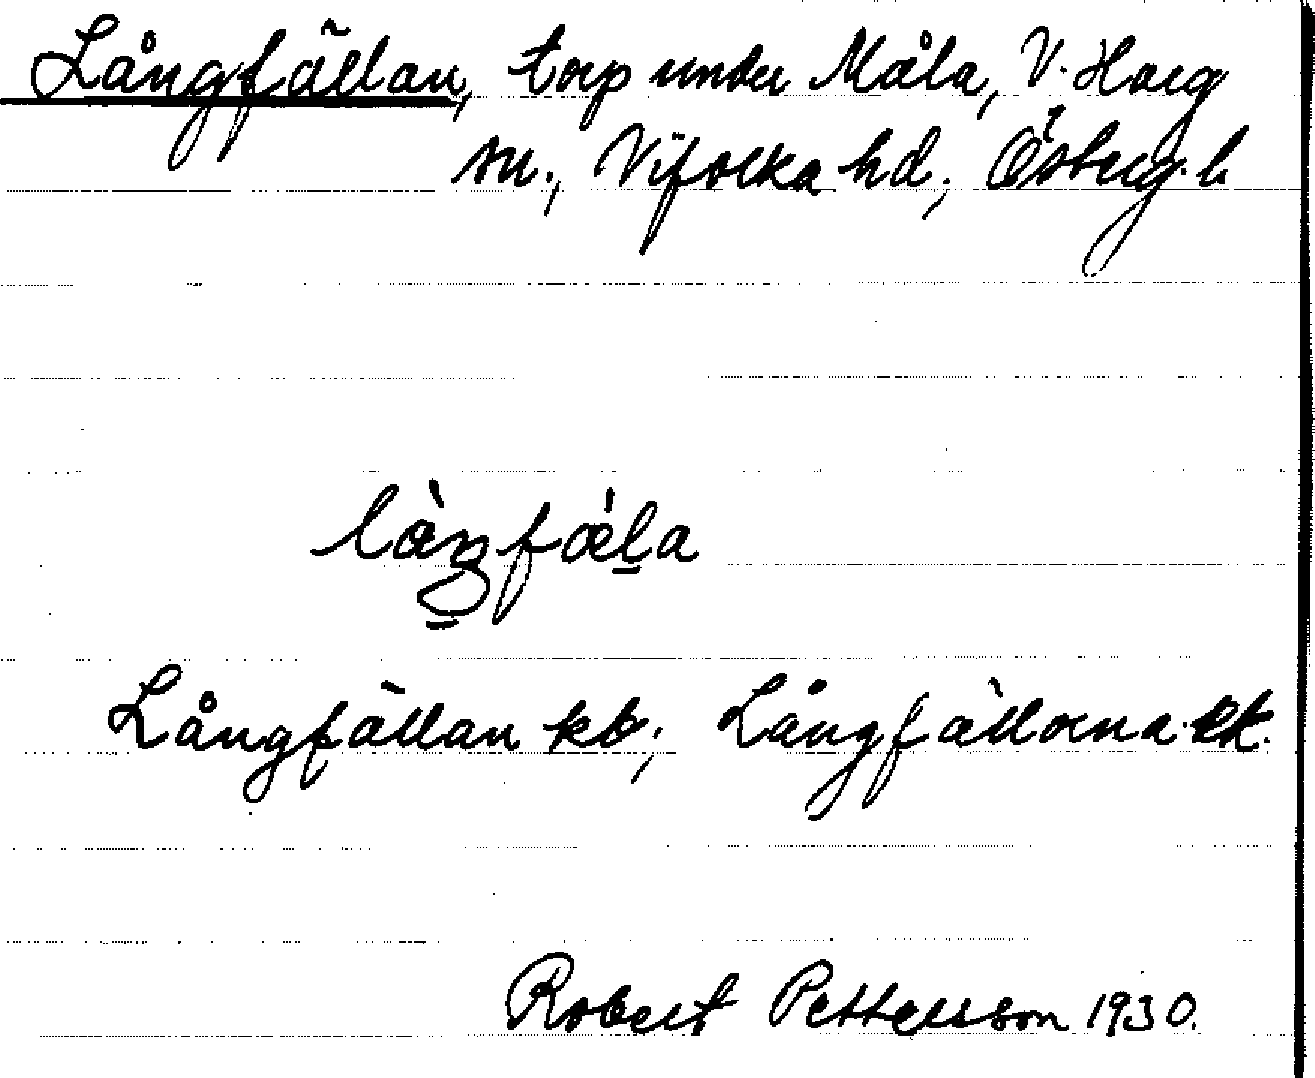 Långfällan, torp under Måla, V. Harg
sn., Vifolka hd, Östergl.
Långfällan kb; Långfällorna ek.
Robert Pettersson 1930.